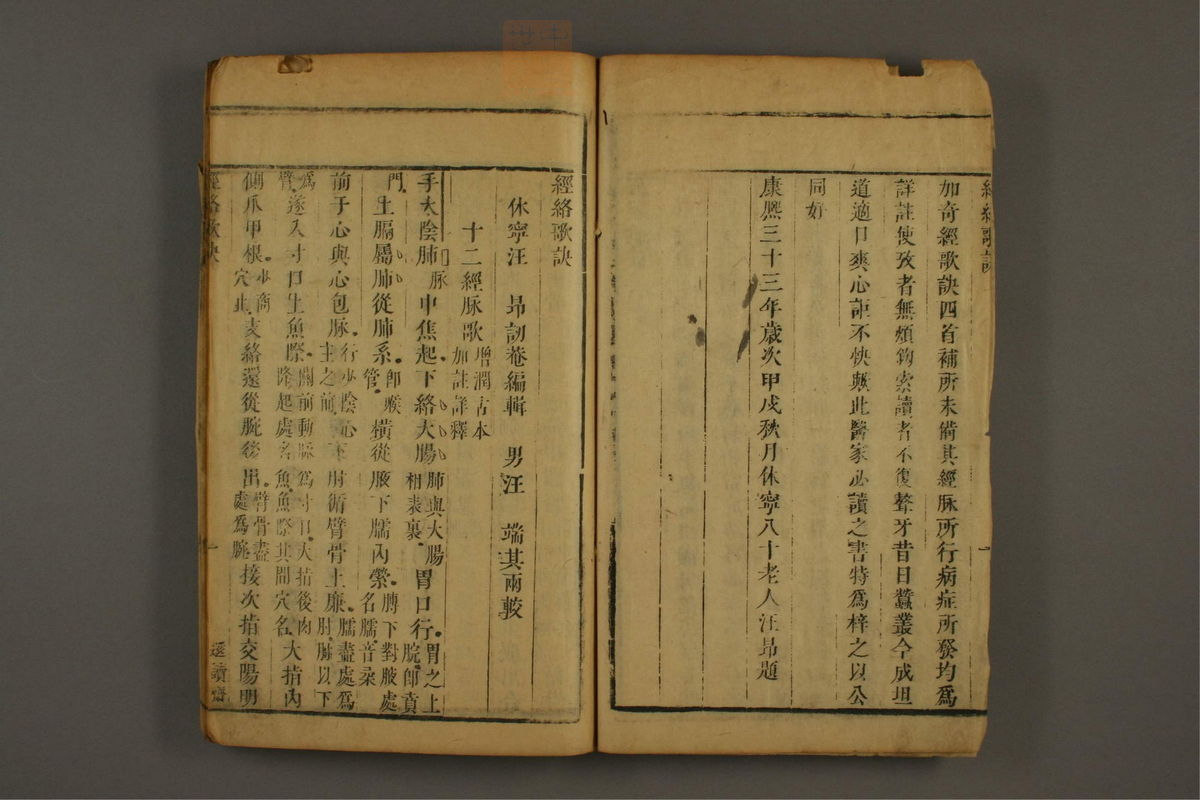 經絡歌訣
加奇經歌訣四首補所未備其經脉所行病症所發均為
詳註使攷者無煩鈎索讀者不復聱牙昔日蠶叢今成坦
道適口爽心詎不快歟此醫家必讀之書特為梓之以公
同好
康熙三十三年歲次甲戌秋月休寧八十老人汪昂題
經絡歌訣
休寧汪 昂訒菴編輯 男汪 端其兩較
十二經脉歌 增潤古本 加註詳釋
手太陰肺脉中焦起下絡大腸 肺與大腸 相表裏 胃口行 胃之上 脘即賁
門 上膈屬肺從肺系 即喉 管 橫從腋下臑內縈 膊下對腋處 名臑音柔
前于心與心包脉 行少陰心 主之前 下肘循臂骨上廉 臑盡處為 肘肘以下
為 臂 遂入寸口上魚際 關前動脉為寸口大指後肉 隆起處名魚魚際其間穴名 大指內
側爪甲根 少商 穴止 支絡還從腕後出 臂骨盡 處為腕 接次指交陽明
經絡歌訣 一 還讀齋